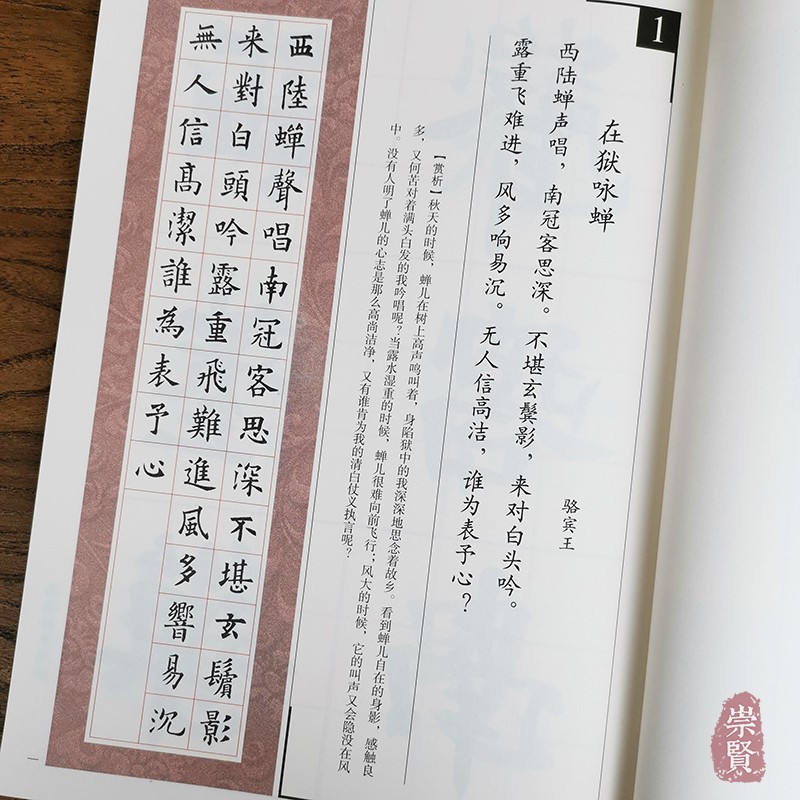 1
在狱咏蝉
骆宾王
西陆蝉声唱，南冠客思深。不堪玄鬓影，来对白头吟。
露重飞难进，风多响易沉。无人信高洁，谁为表予心？
【赏析】秋天的时候，蝉儿在树上高声鸣叫着，身陷狱中的我深深地思念着故乡。看到蝉儿自在的身影，感触良
多，又何苦对着满头白发的我吟唱呢？当露水湿重的时候，蝉儿很难向前飞行；风大的时候，它的叫声又会隐没在风
中。没有人明了蝉儿的心志是那么高尚洁净，又有谁肯为我的清白仗义执言呢？
西陸蟬聲唱南冠客思深不堪玄鬢影
来對白頭吟露重飛難進風多響易沉
無人信高潔誰為表予心
一
崇賢